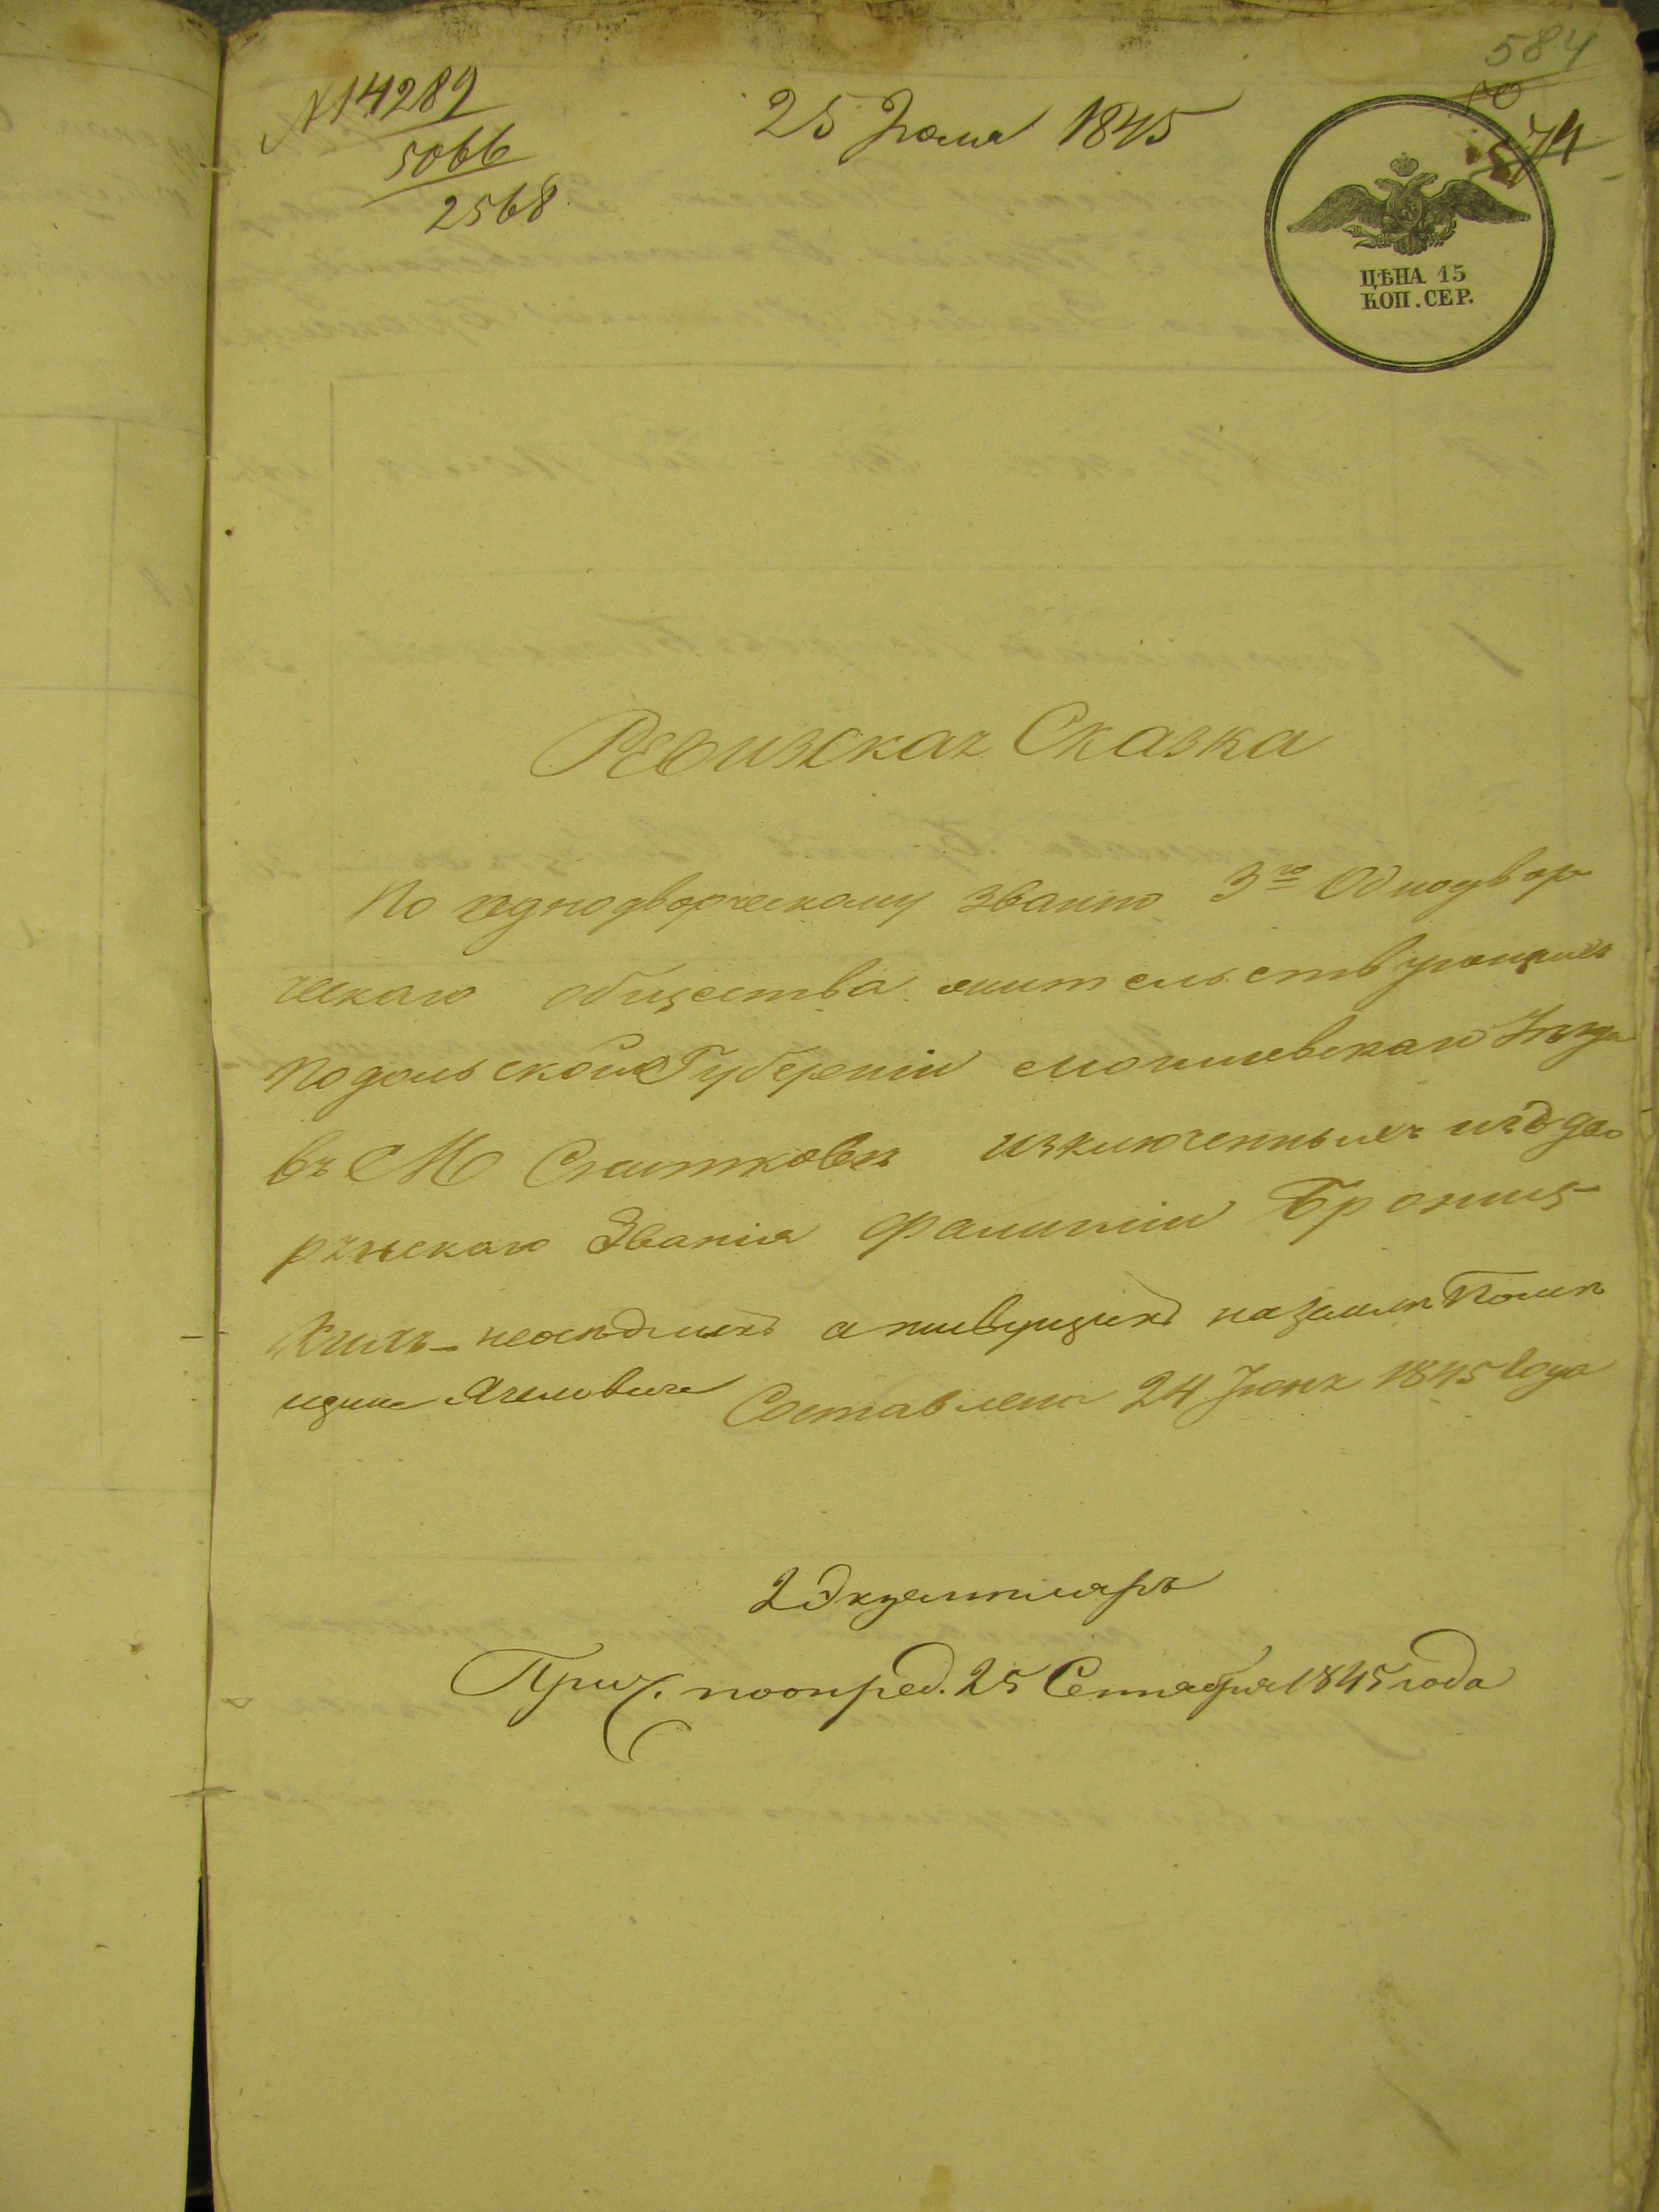 584
50
574
№ 14289
5066
2568
25 Іюля 1845
ЦѢНА 15
КОП. СЕР.
Ревизская Сказка
По однодворческому званію 3го Однодвор
ческаго общества жительствующихъ
Подольской Губерніи Могилевскаго Уѣзда
въ М Снитковѣ изключенныхъ изъ дво
рянскаго Званія Фамиліи Брониц
кихъ неосѣдлыхъ а живущихъ на Землѣ Помѣ
щика Составлена 24 Іюня 1845 Года
2 Экземпляръ
Прич. по опред. 25 Сентября 1845 года